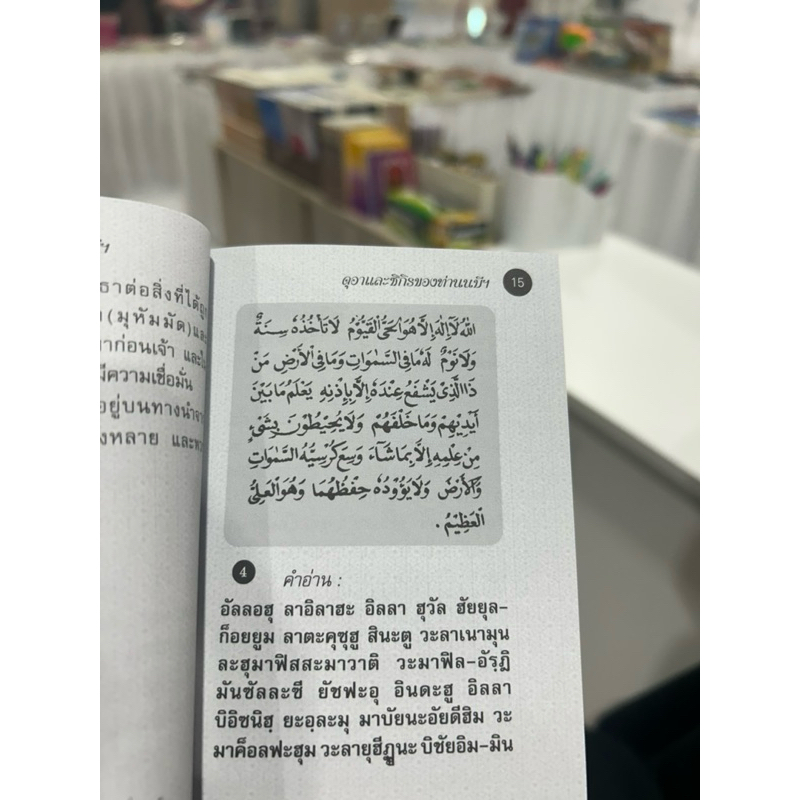 ธาต่อสิ่งที่ได้ถูก
(มุหัมมัด)และ
าก่อนเจ้า และใน
มีความเชื่อมั่น
อยู่บนทางนำจาก
งหลาย และพวก
ดุอาและซิกิรของท่านนบีฯ 15
اللهُ لَا إِلٰهَ إِلَّا هُوَ الْحَيُّ الْقَيُّوْمُ لَا تَأْخُذُهٗ سِنَةٌ
وَلَا نَوْمٌ لَهٗ مَا فِي السَّمٰوَاتِ وَمَا فِي الْأَرْضِ مَنْ
ذَا الَّذِيْ يَشْفَعُ عِنْدَهٗ إِلَّا بِإِذْنِهِ يَعْلَمُ مَا بَيْنَ
أَيْدِيْهِمْ وَمَا خَلْفَهُمْ وَلَا يُحِيْطُوْنَ بِشَيْءٍ
مِنْ عِلْمِهِ إِلَّا بِمَا شَاءَ وَسِعَ كُرْسِيُّهُ السَّمٰوَاتِ
وَالْأَرْضَ وَلَا يَؤُوْدُهٗ حِفْظُهُمَا وَهُوَ الْعَلِيُّ
الْعَظِيْمُ .
4 คำอ่าน :
อัลลอฮุ ลาอิลาฮะ อิลลา ฮุวัล ฮัยยุล-
ก็อยยูม ลาตะคุซุฮู สินะตู วะลาเนามุน
ละฮุมาฟิสสะมาวาติ วะมาฟิล-อัรฺฎิ
มันซัลละซี ยัชฟะอุ อินดะฮู อิลลา
บิอิซนิฮฺ ยะอฺละมุ มาบัยนะอัยดีฮิม วะ
มาค็อลฟะฮุม วะลายุฮีฏูนะ บิชัยอิม-มิน